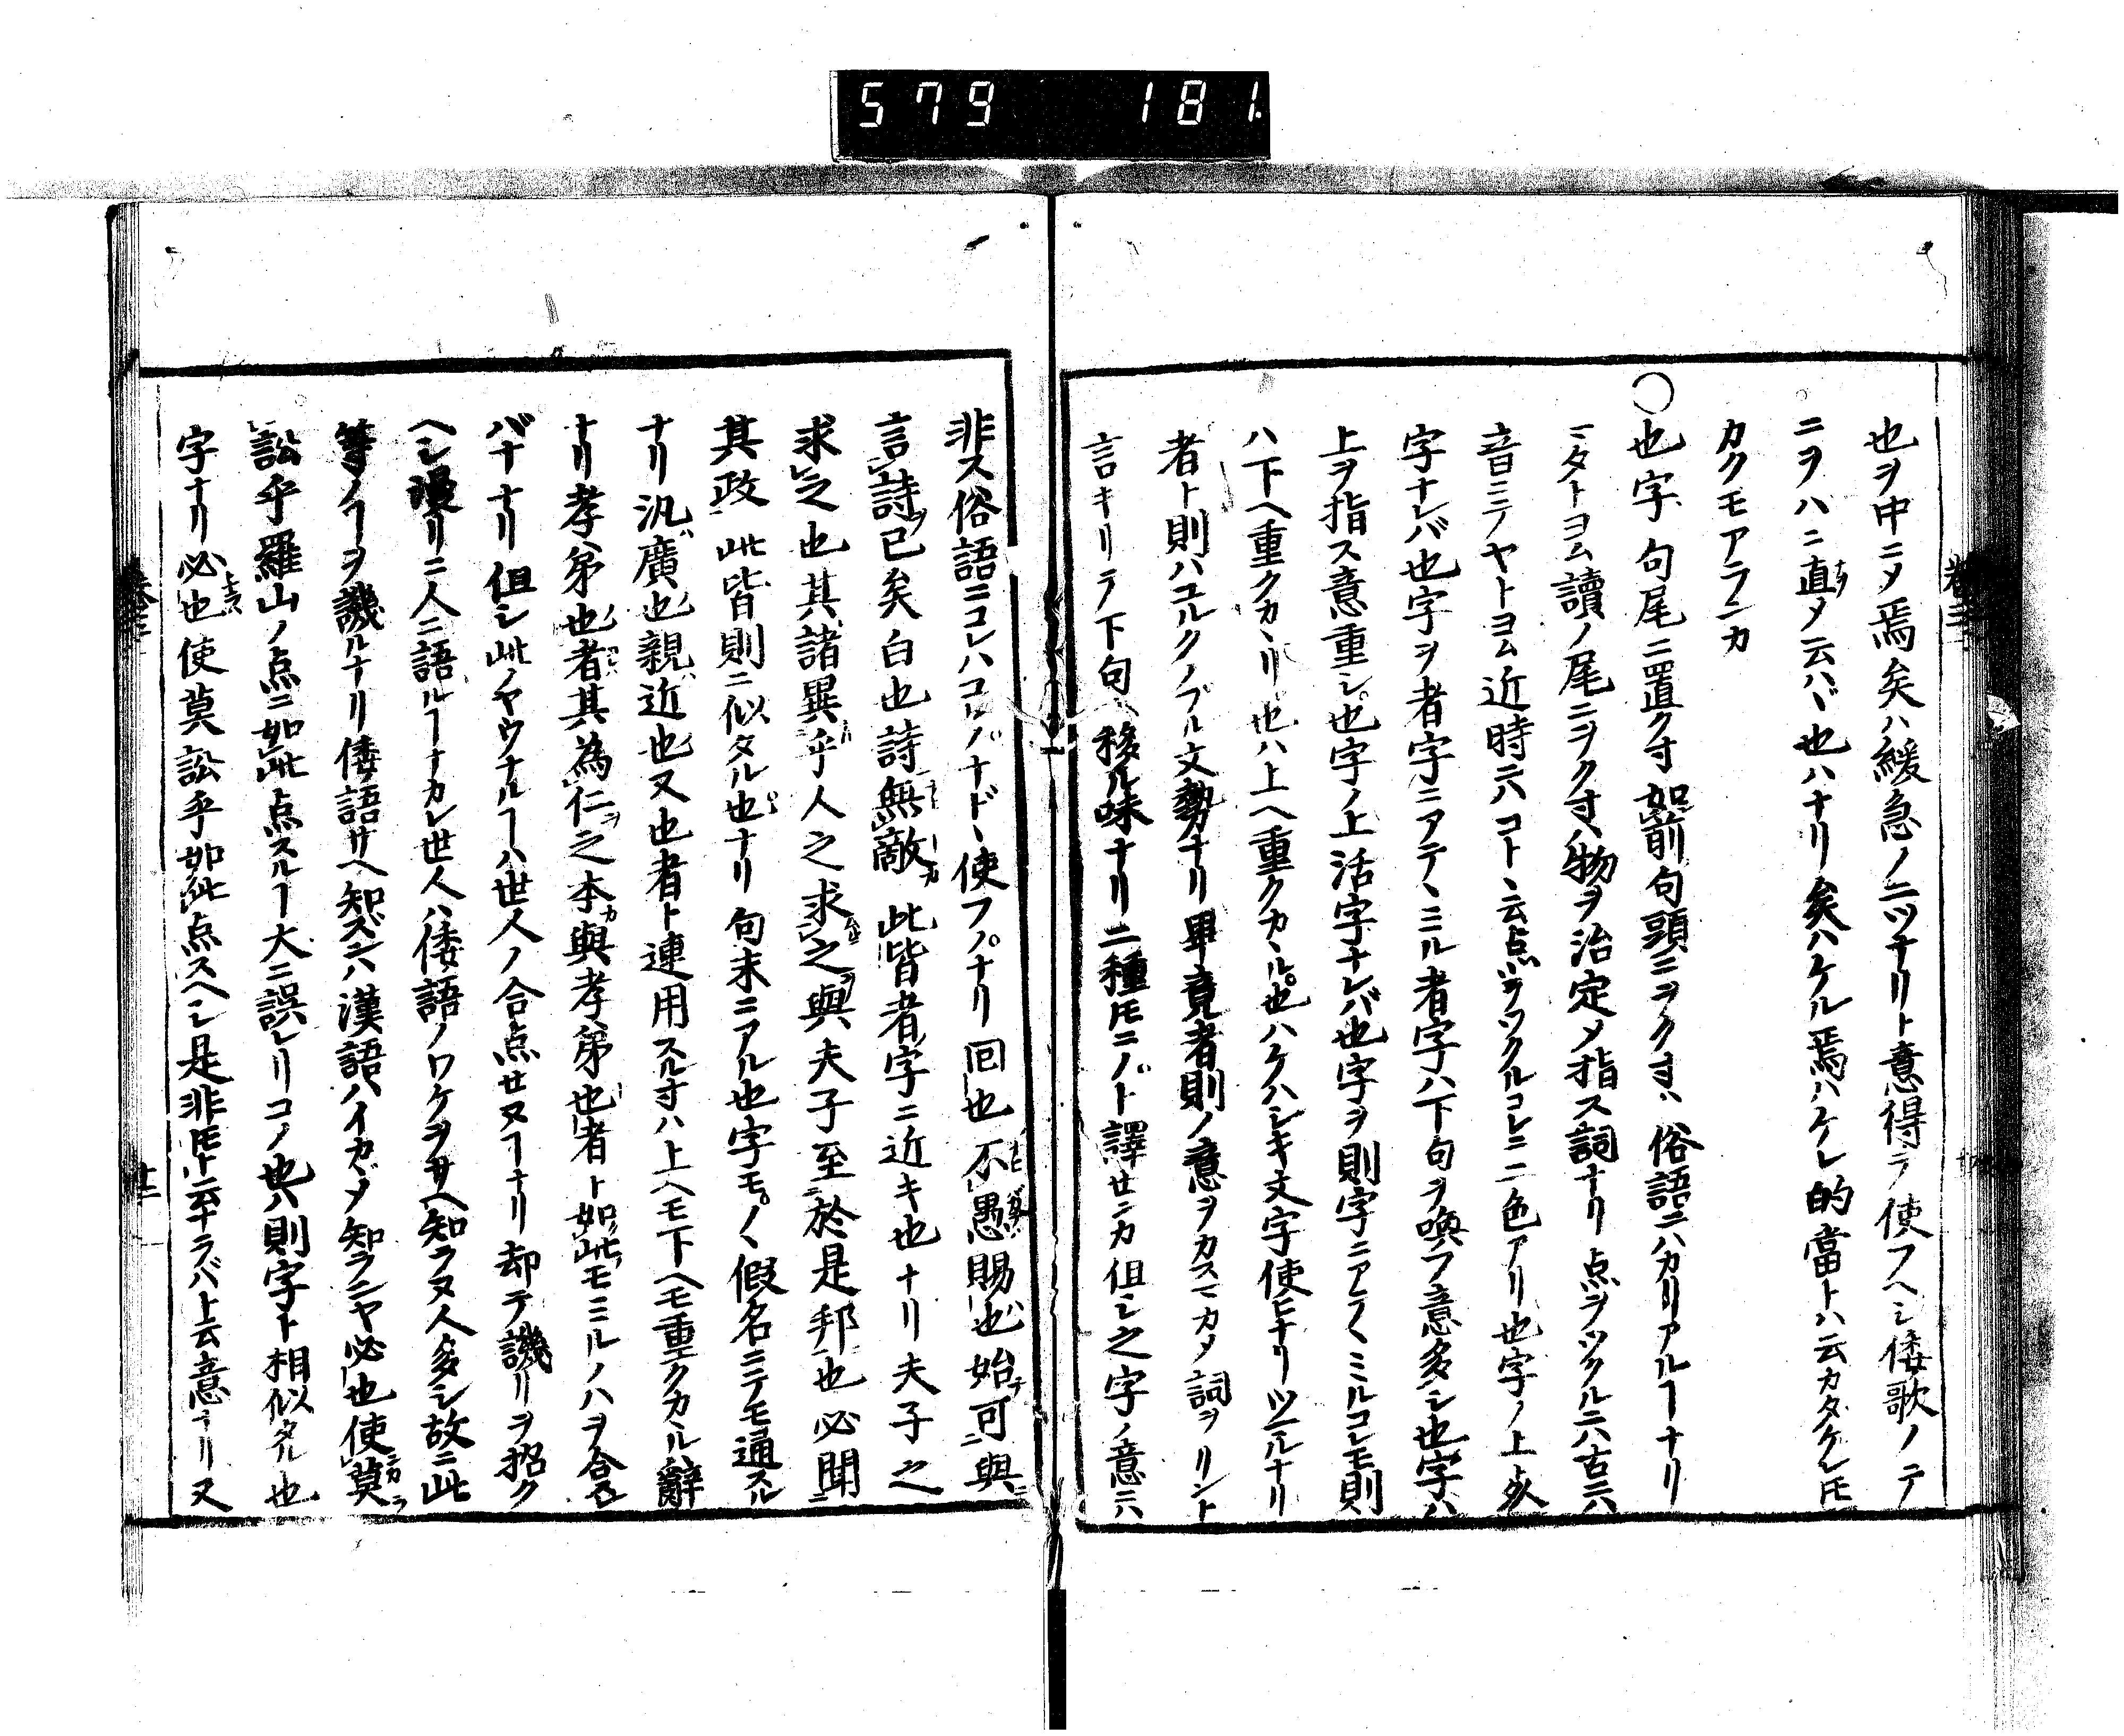 579 181
也ヲ中ニメ焉矣ハ緩急ノ二ツナリト意得テ使フヘシ倭歌ノテ
ニヲハニ直メ云ハヾ也ハナリ矣ハケル焉ハケレ的當トハ云カタケレ𪜈
カクモアランカ
〇也字句尾ニ置クヿ如前句頭ニヲクヿハ俗語ニハカリアルヿナリ
マタトヨム讀ノ尾ニヲクヿハ物ヲ治定メ指ス詞ナリ点ヲツクルニハ古ニハ
音ニテヤトヨム近時ニハコトハ云点ヲツクルコレニ二色アリ也字ノ上
字ナレバ也字ヲ者字ニアテヽミル者字ハ下句ヲ喚フ意多シ也字ハ
上ヲ指ス意重シ也字ノ上活字ナレバ也字ヲ則字ニアテヽミルコレモ則
ハ下ヘ重クカヽリ也ハ上ヘ重クカヽル也ハケハシキ文字使ヒナリツマルナリ
者ト則ハユルクノブル文勢ナリ畢竟者則ノ意ヲカスニカメ詞ヲリント
言キリテ下句ヘ移ル味ナリ二種𪜈ニノバト譯センカ但シ之字ノ意ニハ
非ス俗語ニコレハコレハナドヽ使フナリ回也不愚賜也始可與
言詩已矣白也詩無敵此皆者字ニ近キ也ナリ夫子之
求之也其諸異乎人之求之與夫子至於是邦也必聞
其政此皆則ニ似タル也ナリ句末ニアル也字モノ假名ニテモ通スル
ナリ汎廣也親近也又也者ト連用スルヿハ上ヘモ下ヘモ重クカヽル辭
ナリ孝弟也者其為仁之本與孝弟也者ト如此モミルノハヲ含
バナリ但シ此ノヤウナルヿハ世人ノ合点セヌヿナリ却テ譏リヲ招ク
ヘシ漫リニ人ニ語ルヿナカレ世人ハ倭語ノワケヲサヘ知ラヌ人多シ故ニ此
等ノヿヲ譏ルナリ倭語サヘ知ズンハ漢語ハイカヾメ知ランヤ必也使莫
訟乎羅山ノ点ニ如此点スルヿ大ニ誤レリコノ也ハ則字ト相似タル也
字ナリ必也使莫訟乎如此点スヘシ是非𪜈ト云ナラバ上云意ナリ又